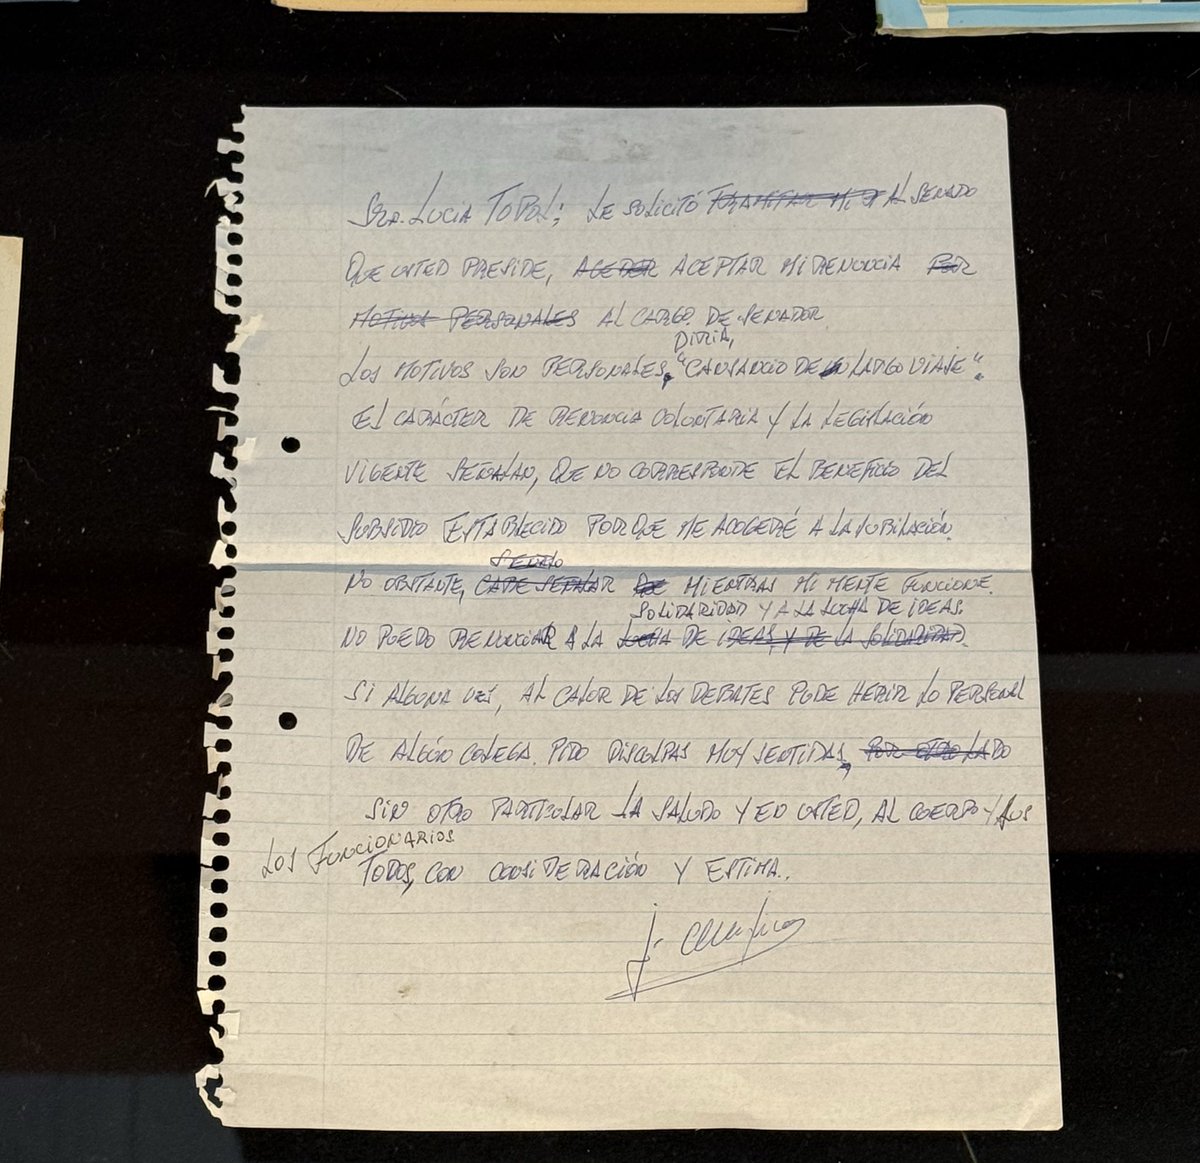 Sra. Lucia Topol; Le solicitó tramitar mi al Senado
que usted preside, aceder aceptar mi renuncia por
motivos personales al cargo de Senador.
diria,
Los motivos son personales, "cansancio de un largo viaje".
El carácter de renuncia voluntaria y la legislación
vigente señalan, que no corresponde el beneficio del
subsidio establecido porque me acogeré a la jubilación.
señalo
No obstante, cabe señalar que mientras mi mente funcione.
solidaridad y a la lucha de ideas.
no puedo renunciar a la lucha de ideas, y de la solidaridad.
Si alguna vez, al calor de los debates pude herir lo personal
de algún colega. Pido disculpas muy sentidas, por otro lado
Sin otro particular la saludo y en usted, al cuerpo y sus
los funcionarios
todos, con consideración y estima.